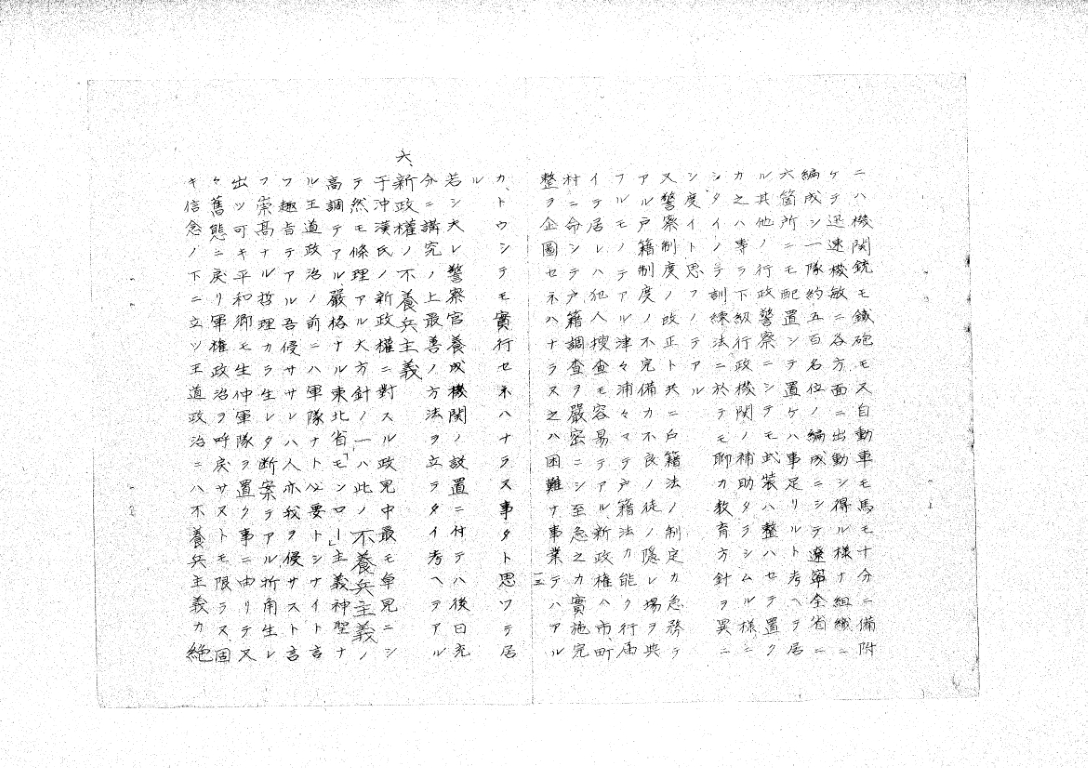 ニハ機関銃モ鐵砲モ又自動車モ馬モ十分ニ備附
ケテ迅速機敏ニ各方面ニ出動シ得ル様ナ組織ニ
編成シ一隊約五百名位ノ編成ニシテ遼寧全省ニ
六箇所ニモ配置シテ置ケハ事足リルト考ヘテ居
ル其他ノ行政警察ニシテモ武装ハ整ハセテ置ク
カ之ハ専ラ下級行政機関ノ補助タラシムル様ニ
シタイトノ訓練法ニ於テモ聊カ教育方針ヲ異ニ
シ度イ思フノテアル
又警察制度ノ改正ト共ニ戸籍法ノ制定カ急務テ
アル戸籍制度ノ不完備カ不良徒ノ隠レ場ヲ與
フルモノテアル津々浦々マテ戸籍法カ能ク行届
イテ居レハ犯人捜査モ容易テアル新政権ハ市町
村ニ命シテ戸籍調査ヲ嚴密ニシ至急之カ實施完
整ヲ企圖セネハナラス之ハ困難ナ事業テハアル
三
カ、トウシテモ實行セネハナラス事タト思ツテ居
ル
若シ夫レ警察官養成機関ノ設置ニ付テハ後日充
分ニ講究ノ上最善ノ方法ヲ立テタイ考ヘテアル
六、新政権ノ不養兵主義
于冲漢氏ノ新政權ニ對スル政見中最モ卓見ニシ
テ然モ條理アル大方針ノ一ハ此ノ不養兵主義ノ
高調テアル嚴格ナル東北省モンロー主義神聖ナ
ル王道政治ノ前ニハ軍隊ナトハ要トシナイト言
フ趣旨テアル吾侵ササレハ人亦我ヲ侵サスト言
フ崇高ナル哲理カラ生レタ断案テアル折角生レ
出ツ可キ平和郷モ生仲軍隊ヲ置ク事ニ由リテ又
々舊態ニ戻リ軍權政治ヲ呼戻サストモ限ラス固
キ信念ノ下ニ立ツ王道政治ニハ不養兵主義カ絶